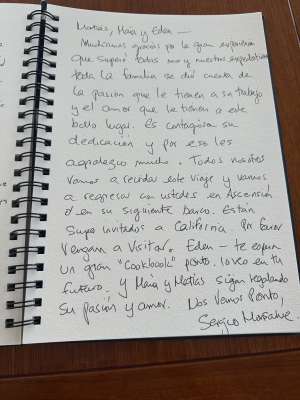 Matías, Maia y Eden —
Muchisimas gracias por la gran experiencia
que superó todas mis y nuestras expectativas
toda la familia se dió cuenta de
la pasión que le tienen a su trabajo
y el amor que le tienen a este
bello lugar. Es contagiosa su
dedicación y por eso les
agradezco mucho. Todos nosotros
vamos a recordar este viaje y vamos
a regresar con ustedes en Ascensión
o en su siguiente barco. Están
super invitados a California. Por favor
vengan a visitar. Eden — te espera
un gran "Cookbook" pronto, lo veo en tu
futuro. y Maia y Matías sigan regalando
su pasión y amor. Nos vemos Pronto,
Sergio